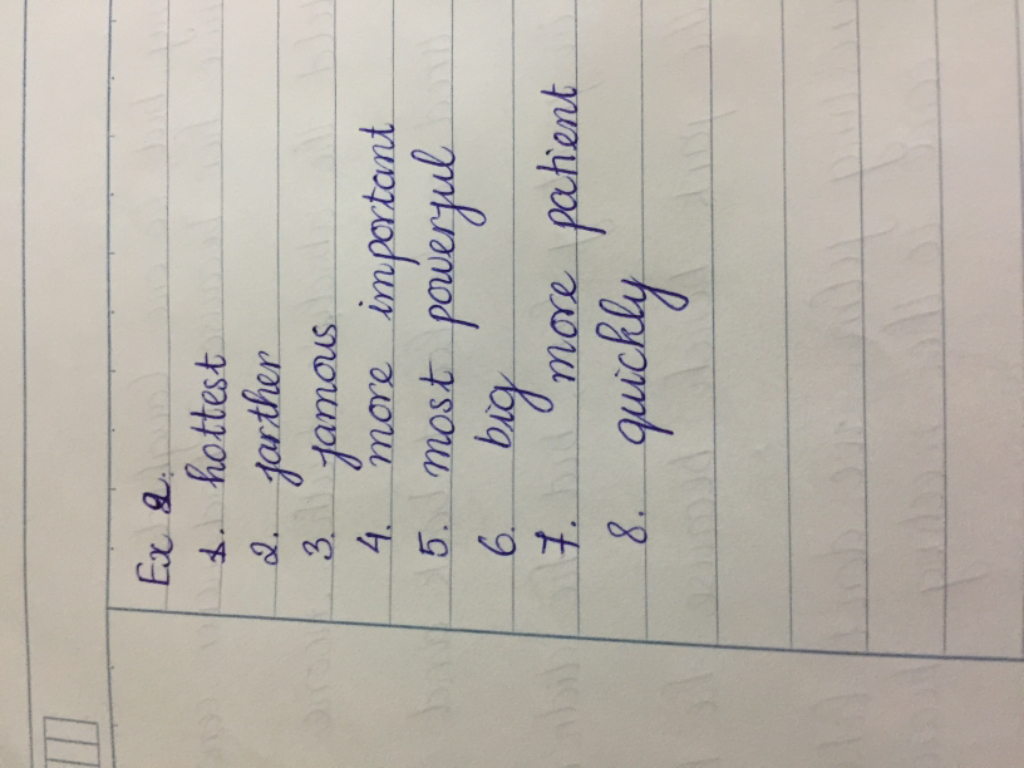 Ex 2.
1. hottest
2. farther
3. famous
4. more important
5. most powerful
6. big
7. more patient
8. quickly